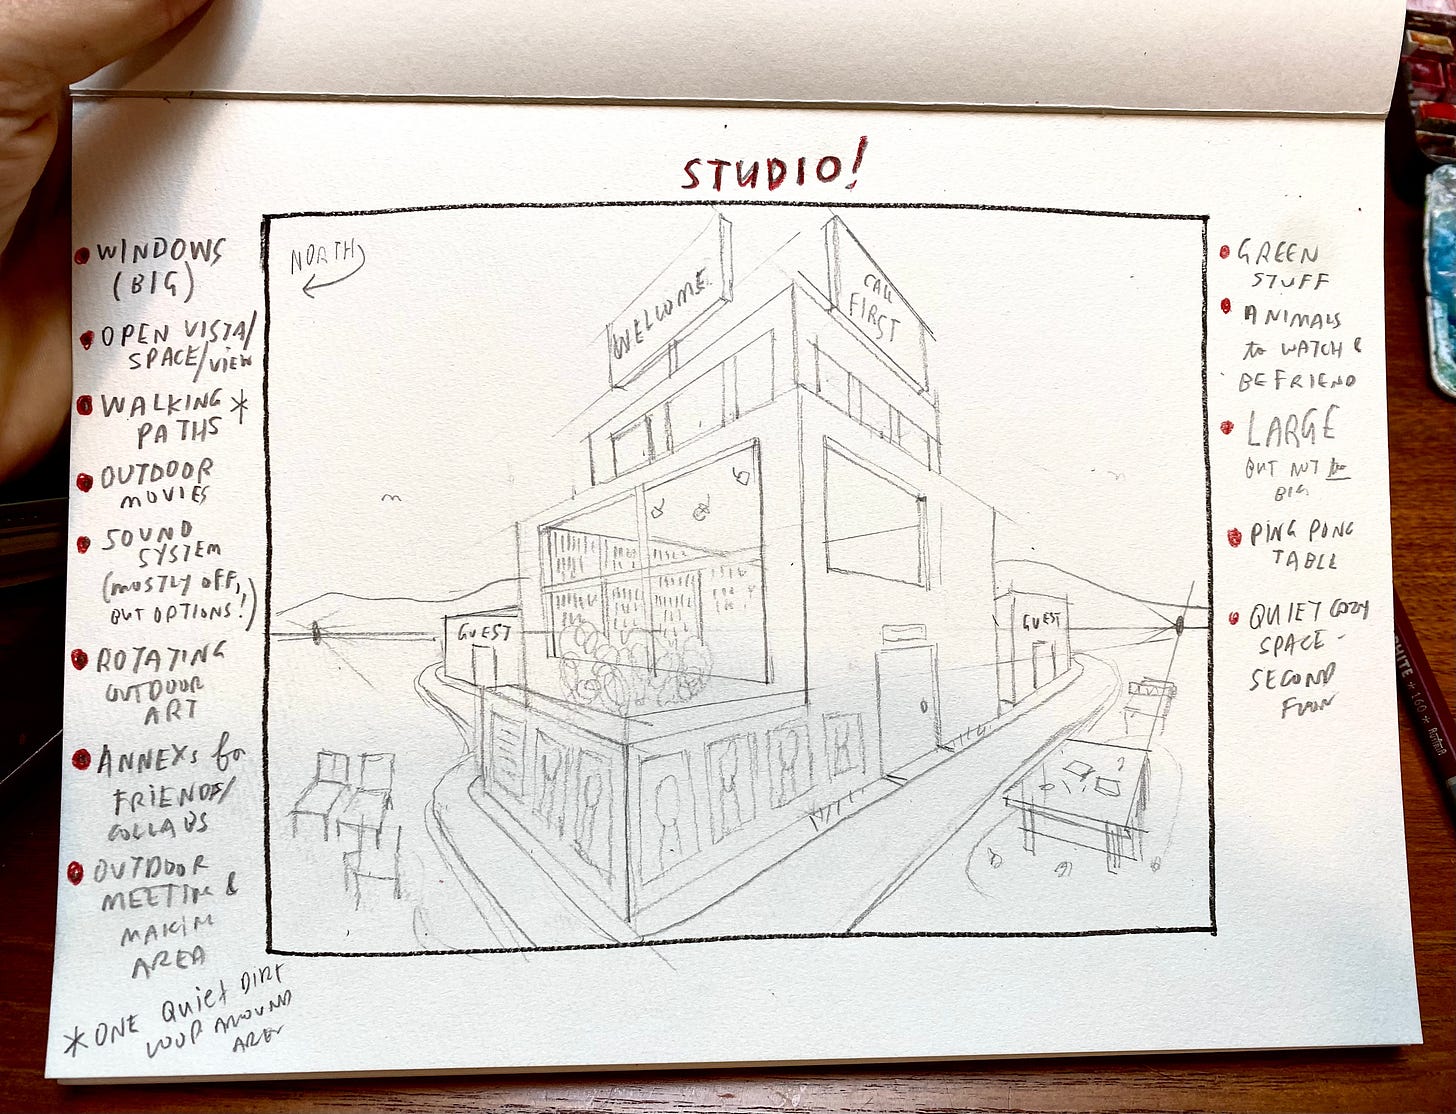 STUDIO!
WINDOWS
(BIG)
OPEN VISTA/
SPACE/VIEW
WALKING *
PATHS
OUTDOOR
MOVIES
SOUND
SYSTEM
(MOSTLY OFF,
BUT OPTIONS!)
ROTATING
OUTDOOR
ART
ANNEXS for
FRIENDS/
COLLABS
OUTDOOR
MEETIN &
MAKIN
AREA
* ONE QUIET DIRT
LOOP AROUND
AREA
NORTH
WELCOME
CALL
FIRST
GUEST
GUEST
GREEN
STUFF
ANIMALS
to WATCH &
BEFRIEND
LARGE
BUT NOT
BIG
PING PONG
TABLE
QUIET COZY
SPACE -
SECOND
FLOOR
WHITE * 160 *